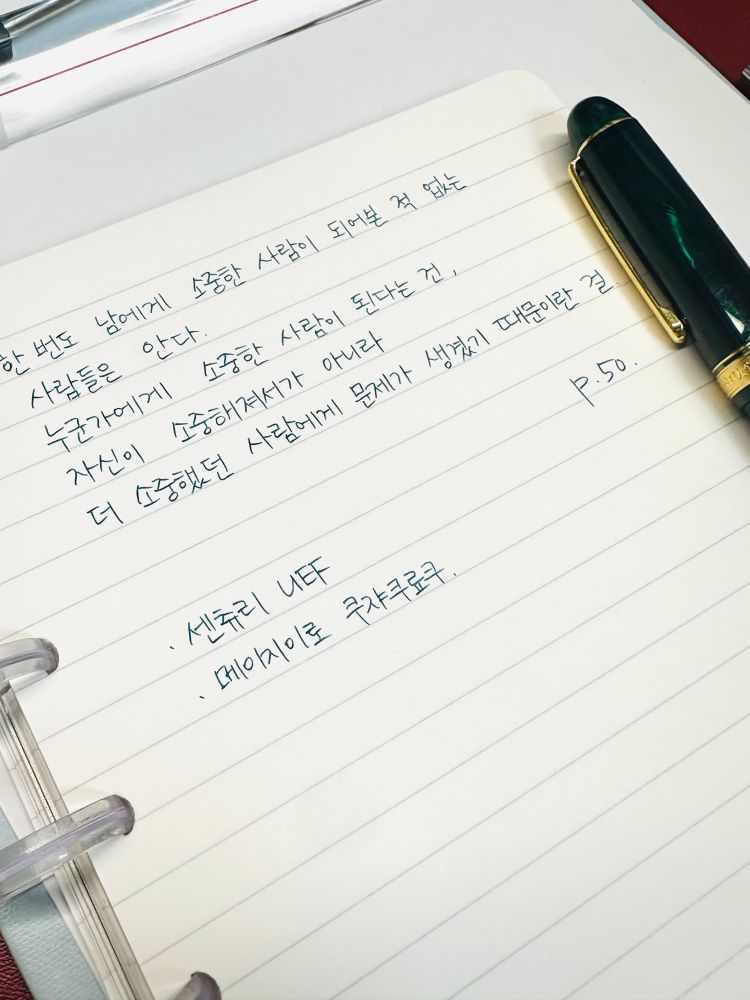 한 번도 남에게 소중한 사람이 되어본 적 없는
사람들은 안다.
누군가에게 소중한 사람이 된다는 건,
자신이 소중해져서가 아니라
더 소중했던 사람에게 문제가 생겼기 때문이란 걸.
p.50.
. 센츄리 UEF
. 메이지이로 쿠쟈쿠료쿠.